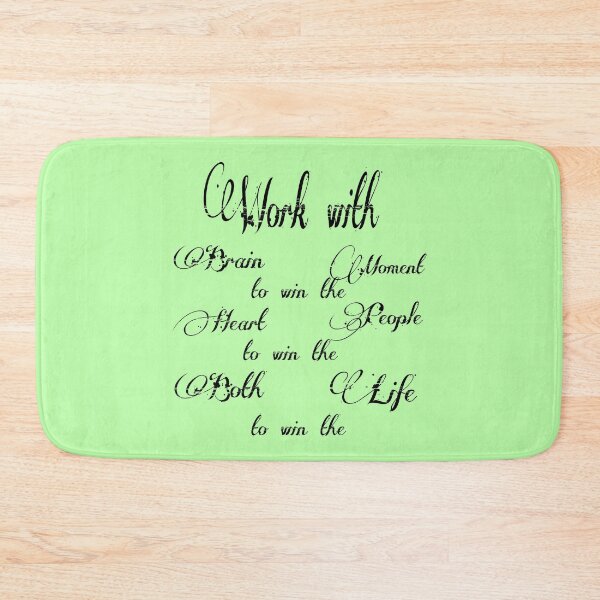 Work with
Brain Moment
to win the
Heart People
to win the
Both Life
to win the